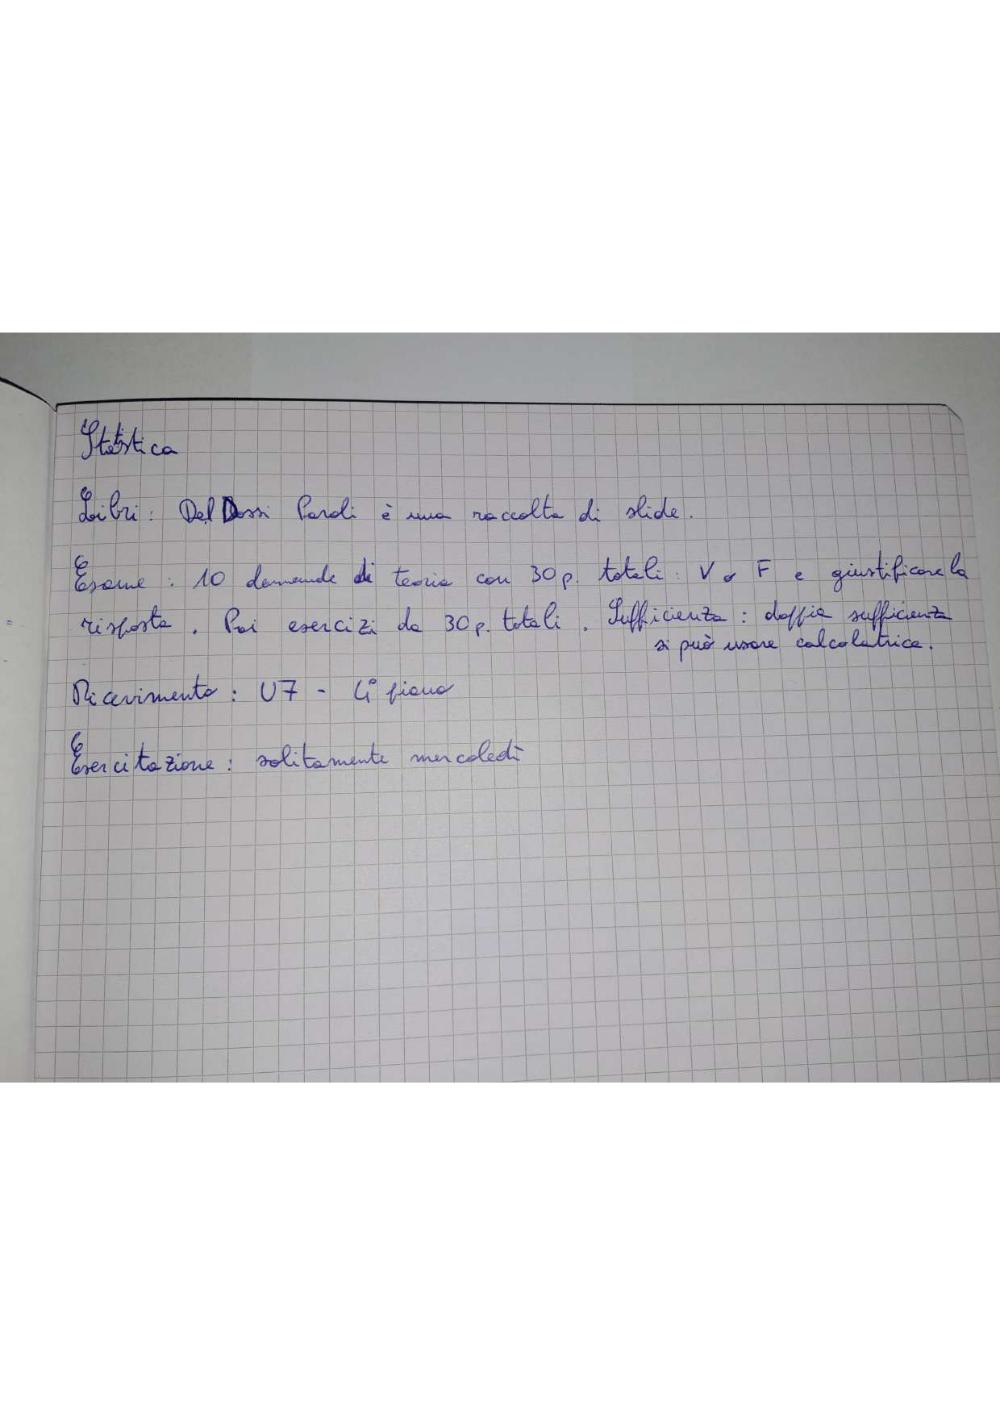 Statistica
Libri: Del Dossi Paroli è una raccolta di slide.
Esame: 10 domande di teoria con 30 p. totali: V o F e giustificare la
risposta. Poi esercizi da 30 p. totali. Sufficienza: doppia sufficienza
si può usare calcolatrice.
Ricevimento: U7 - 4° piano
Esercitazione: solitamente mercoledì